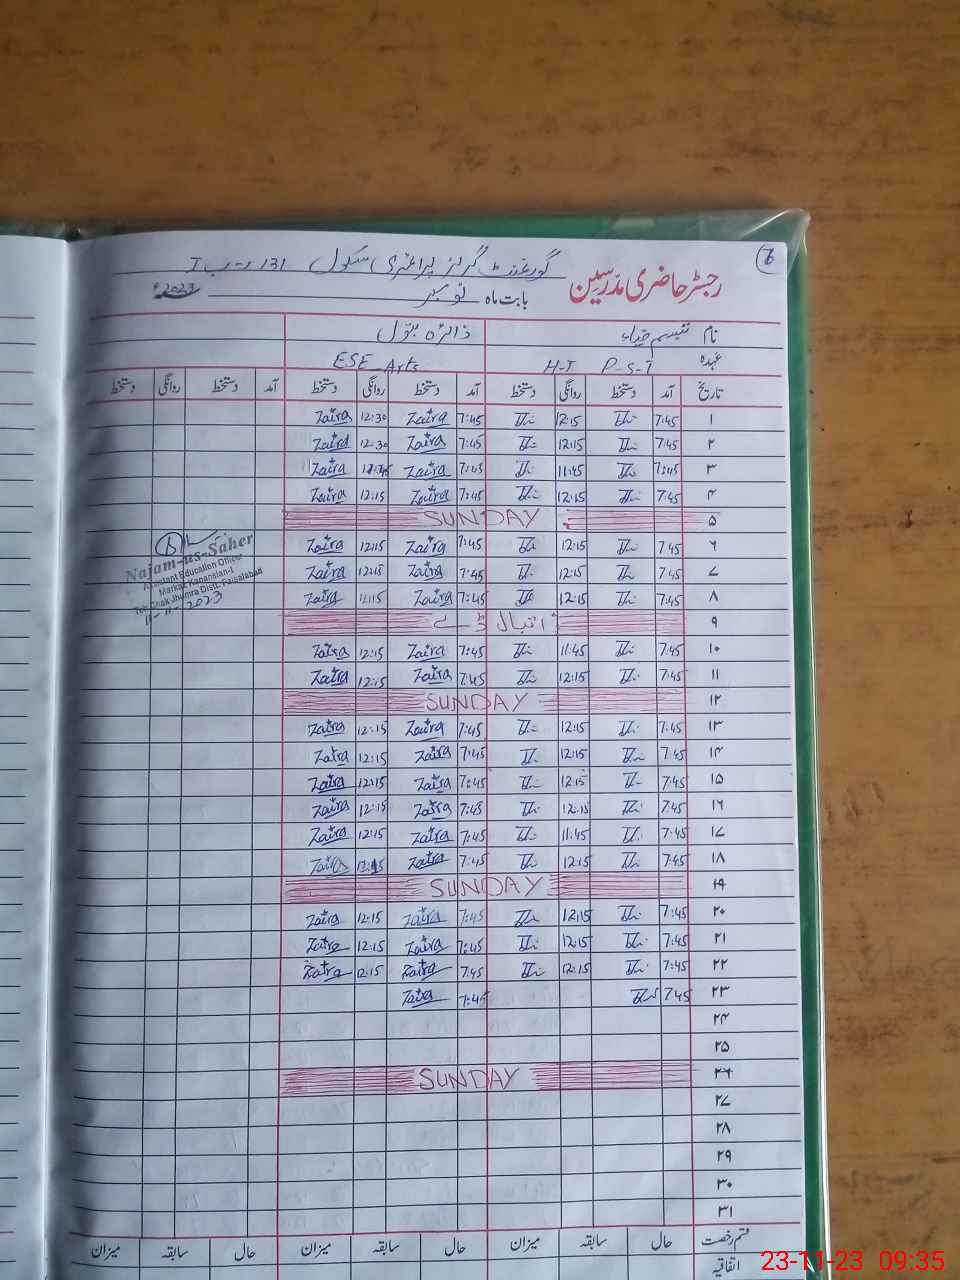 6
گورنمنٹ گرلز پرائمری سکول 131 ر-ب I
رجسٹر حاضری مدرسین
بابت ماہ نومبر 2023ء
نام تبسم ضیاء ذائرہ بتول
عہدہ P-S-T H-T ESE-Arts
تاریخ آمد دستخط روانگی دستخط آمد دستخط روانگی دستخط آمد دستخط روانگی دستخط
۱ 7:45 12:15 7:45 Zaira 12:30 Zaira
۲ 7:45 12:15 7:45 Zaira 12:30 Zaira
۳ 7:45 11:45 7:45 Zaira Zaira
۴ 7:45 12:15 7:45 Zaira 12:15 Zaira
۵ SUNDAY
۶ 7:45 12:15 7:45 Zaira 12:15 Zaira
۷ 7:45 12:15 7:45 Zaira 12:15 Zaira
۸ 7:45 12:15 7:45 Zaira 12:15 Zaira
۹ اقبال ڈے
۱۰ 7:45 11:45 7:45 Zaira 12:15 Zaira
۱۱ 7:45 12:15 7:45 Zaira 12:15 Zaira
۱۲ SUNDAY
۱۳ 7:45 12:15 7:45 Zaira 12:15 Zaira
۱۴ 7:45 12:15 7:45 Zaira 12:15 Zaira
۱۵ 7:45 12:15 7:45 Zaira 12:15 Zaira
۱۶ 7:45 12:15 7:45 Zaira 12:15 Zaira
۱۷ 7:45 11:45 7:45 Zaira 12:15 Zaira
۱۸ 7:45 12:15 7:45 Zaira Zaira
۱۹ SUNDAY
۲۰ 7:45 12:15 7:45 Zaira 12:15 Zaira
۲۱ 7:45 12:15 7:45 Zaira 12:15 Zaira
۲۲ 7:45 12:15 7:45 Zaira 12:15 Zaira
۲۳ 7:45 7:45 Zaira
۲۴
۲۵
۲۶ SUNDAY
۲۷
۲۸
۲۹
۳۰
۳۱
قسم رخصت حال سابقہ میزان حال سابقہ میزان حال سابقہ میزان
اتفاقیہ
Najam-us-Saher
Assistant Education Officer
Markaz Kananslan-I
Teh: Chak Jhumra Distt. Faisalabad
11-11-2023
23-11-23 09:35